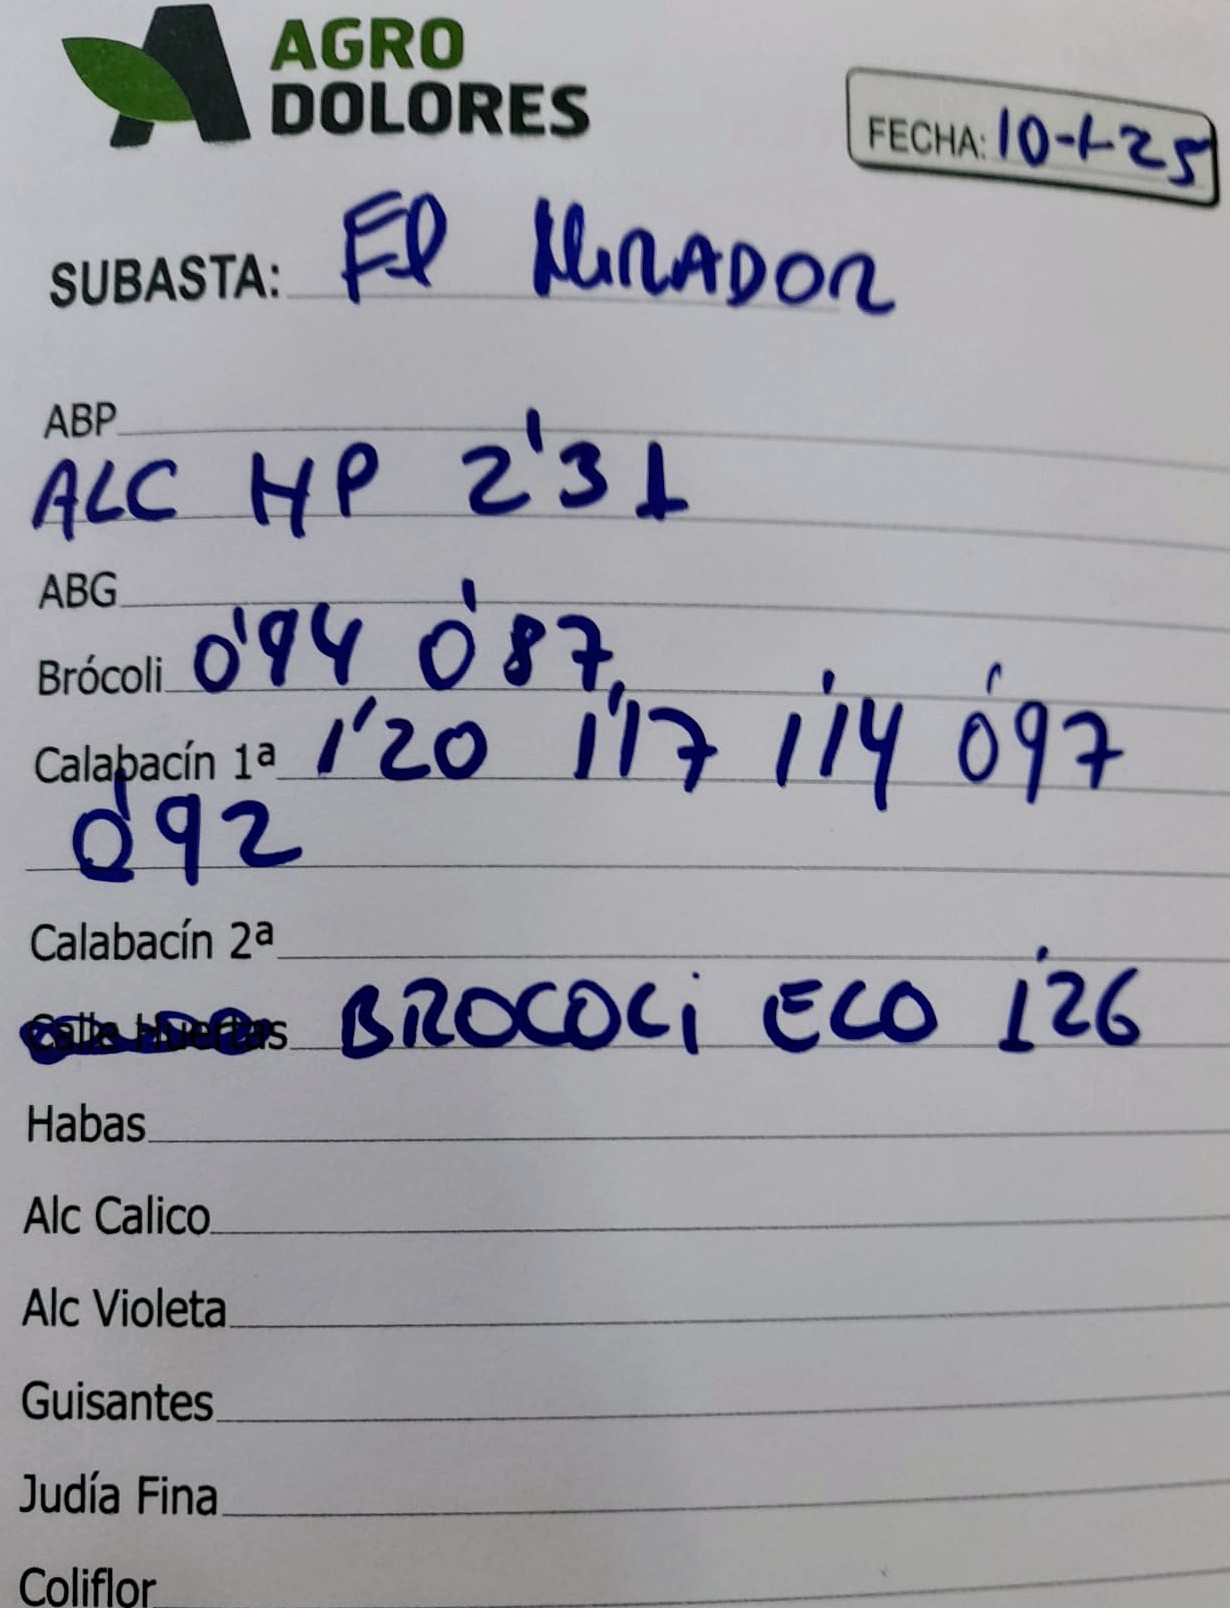 AGRO
DOLORES
FECHA: 10-1-25
SUBASTA: El MiRADOR
ABP
ALC HP 2'31
ABG
Brócoli 0'94 0'87
Calabacín 1ª 1'20 1'17 1'14 0'97
0'92
Calabacín 2ª
Calle Huertas BROCOLi ECO 1'26
Habas
Alc Calico
Alc Violeta
Guisantes
Judía Fina
Coliflor